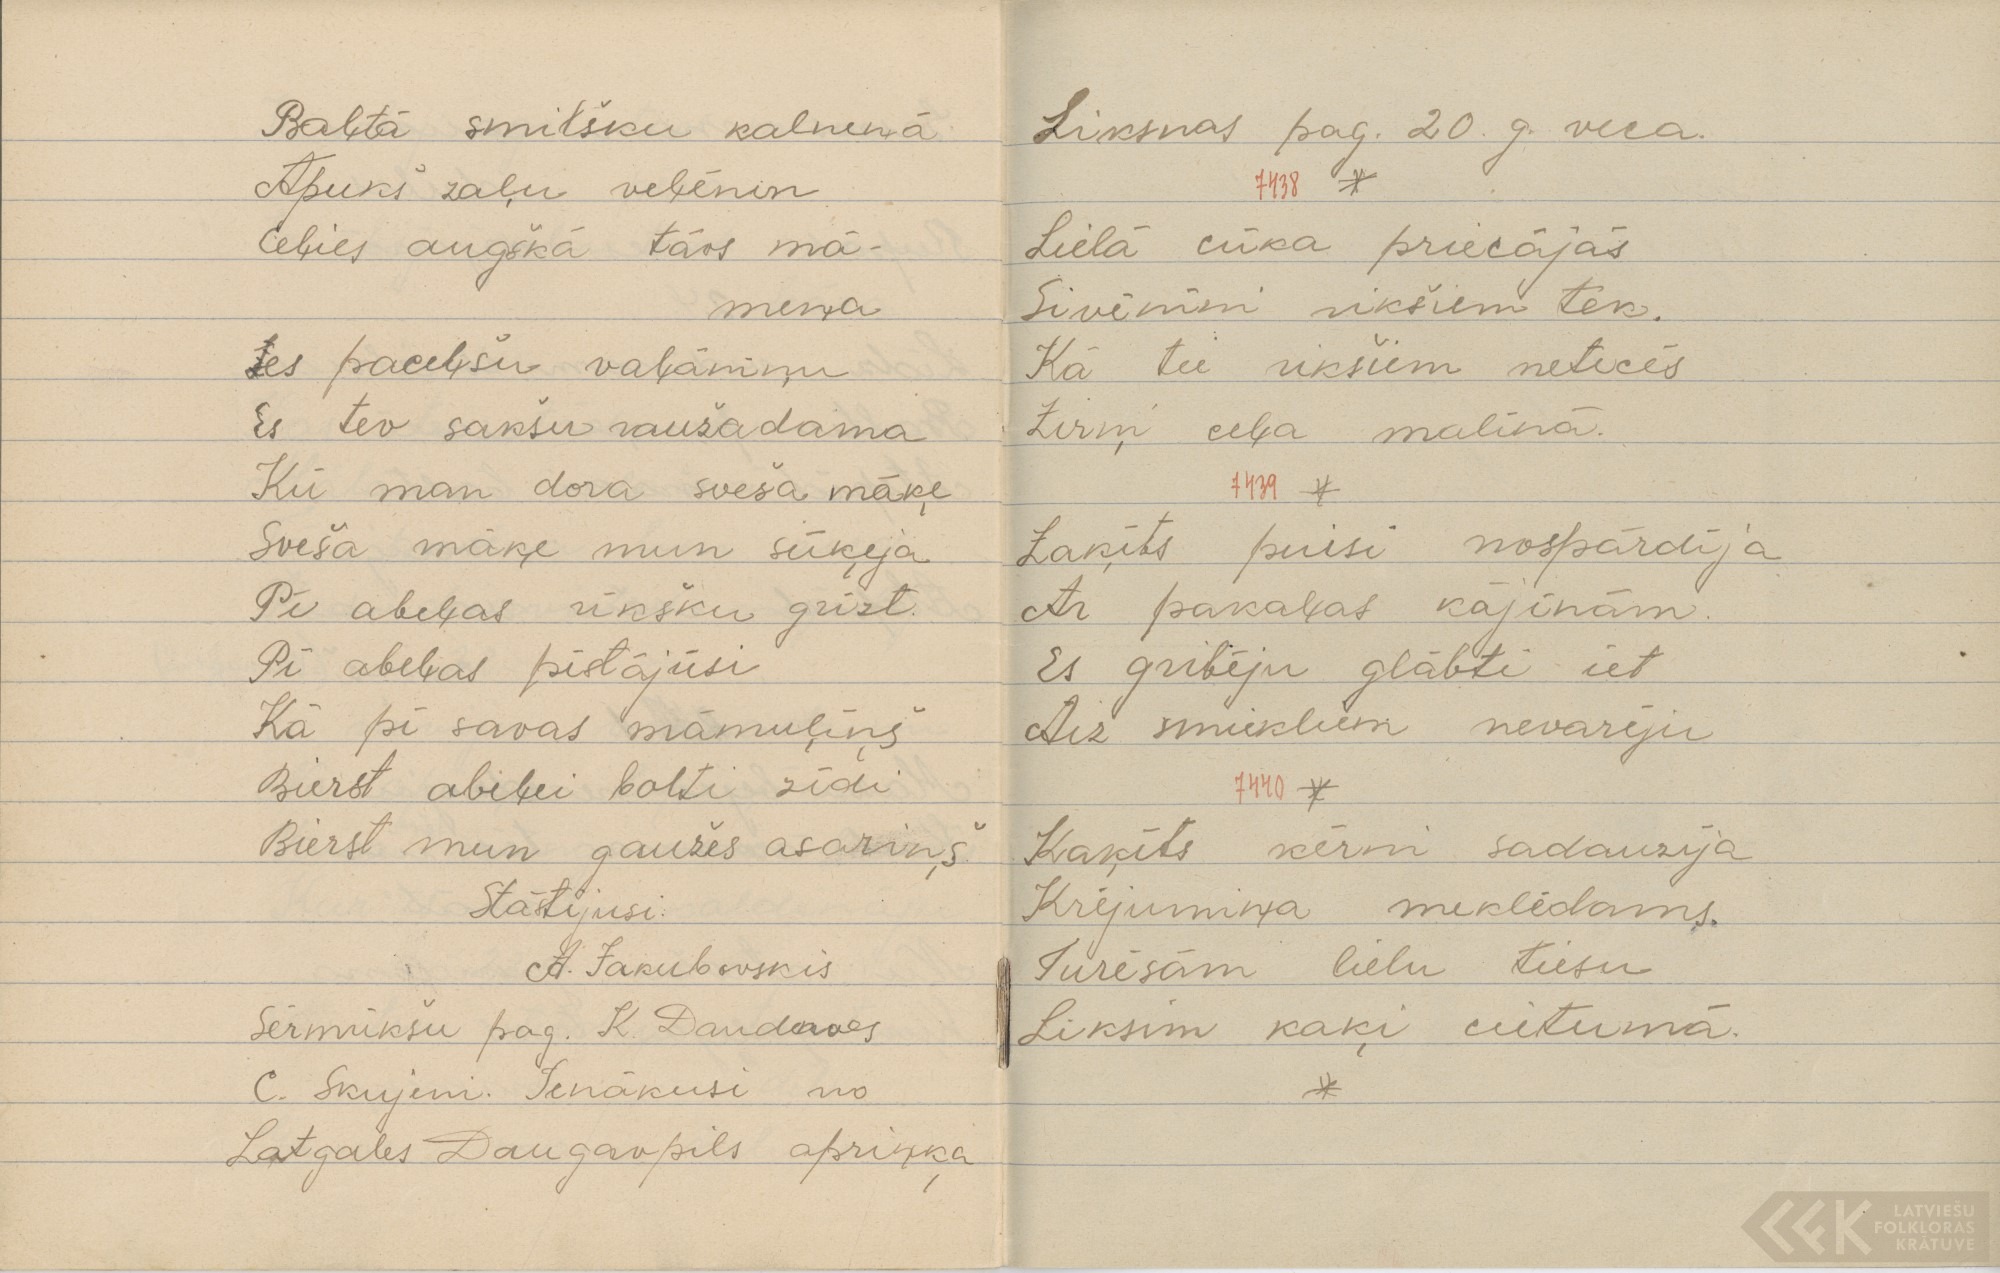 Baļtā smitšku kalneņā
Apukš zaļu veļēnin
Ceļies augškā tāvs mā-
meņa
Ies paceļšu vaļāmiņu
Es tev sakšu raužadama
Kū man dora sveša māķe
Sveša māķe mun sūķeja
Pi abeļas rikšku grizt.
Pi abeļas pistājūsi
Kā pi savas māmuļiņš
Bierst abeļei bolti zīdi
Bierst mun gaužes asariņš.
Stāstijusi:
A. Jakubovskis
Sērmūkšu pag. K. Daudaves
C. Skujeni. Ienākusi no
Latgales Daugavpils apriņķa
Liksnas pag. 20. g. veca.
7438 *
Lielā cūka priecājās
Sivēniņi rikšiem tek.
Kā tie rikšiem netecēs
Zirņi ceļa maliņā.
7439 *
Zaķīts puisi nospārdīja
Ar pakaļas kājiņām.
Es gribēju glābti iet
Aiz smiekliem nevarēju
7440 *
Kaķīts ķērni sadauzīja
Krējumiņa meklēdams.
Turēsām lielu tiesu
Liksim kaķi cietumā.
*
LATVIEŠU
FOLKLORAS
KRĀTUVE